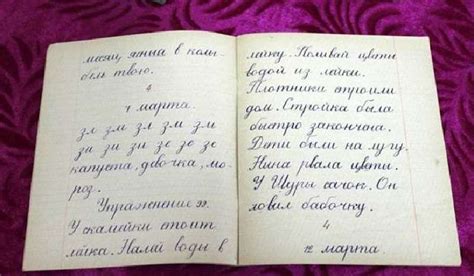 месяц ясный в колы-
бель твою.
4
7 марта.
зл зм зл зм зм
зи зи зи зе зо зе
капуста, девочка, мо-
роз.
Упражнение 99.
У скамейки стоит
лейка. Налей воды в
лейку. Поливай цветы
водой из лейки.
Плотники строили
дом. Стройка была
быстро закончена.
Дети были на лугу.
Нина рвала цветы.
У Шуры сачок. Он
ловил бабочку.
4
12 марта.